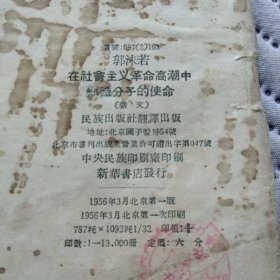 書號:697(2)163
郭沫若
在社會主义革命高潮中
知識分子的使命
民族出版社翻譯出版
地址:北京國子監街64號
北京市書刊出版業營業許可證出字第047號
中央民族印刷廠印刷
新華書店發行
1956年3月北京第一版
1956年3月北京第一次印刷
787耗×1092耗1/32
印数:1—13,000冊 定價:六分